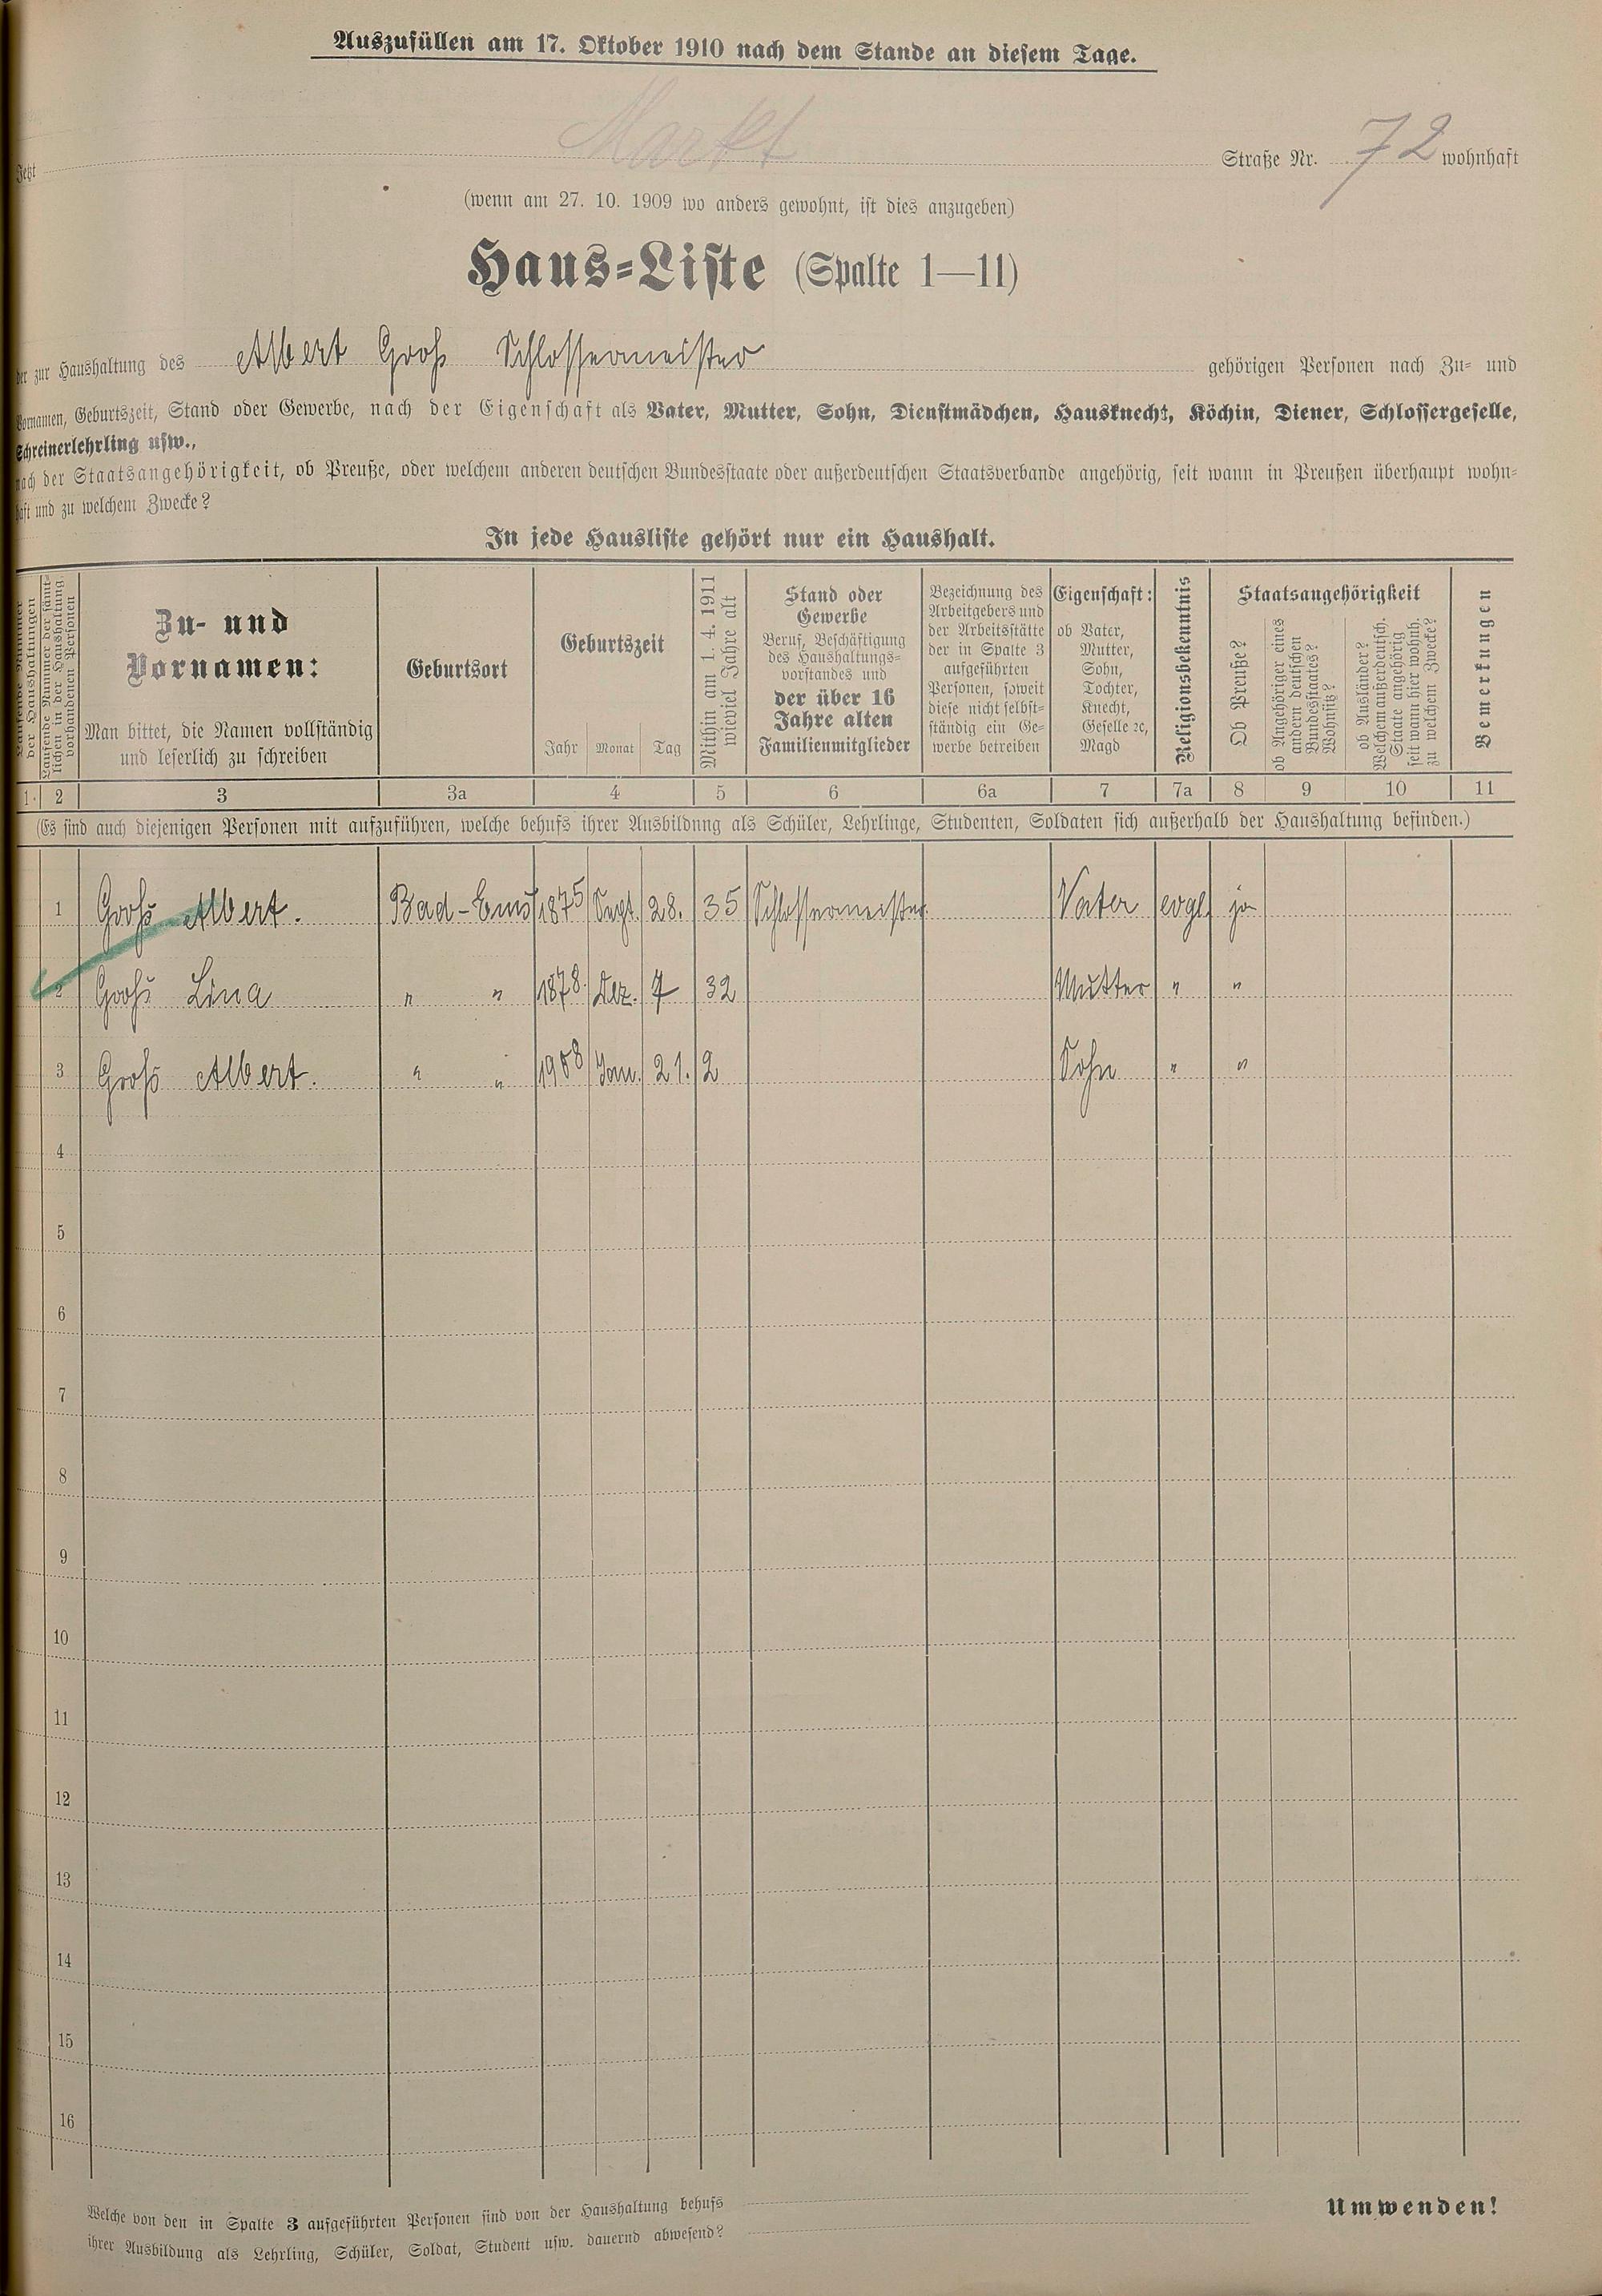 Auszufüllen am 17. Oktober 1910 nach dem Stande an diesem Tage.
Jetzt Markt Straße Nr. 72 wohnhaft
(wenn am 27. 10. 1909 wo anders gewohnt, ist dies anzugeben)
Haus-Liste (Spalte 1—11)
der zur Haushaltung des Albert Groß Schlossermeister gehörigen Personen nach Zu- und
Vornamen, Geburtszeit, Stand oder Gewerbe, nach der Eigenschaft als Vater, Mutter, Sohn, Dienstmädchen, Hausknecht, Köchin, Diener, Schlossergeselle,
Schreinerlehrling usw.,
nach der Staatsangehörigkeit, ob Preuße, oder welchem anderen deutschen Bundesstaate oder außerdeutschen Staatsverbande angehörig, seit wann in Preußen überhaupt wohn-
haft und zu welchem Zwecke?
In jede Hausliste gehört nur ein Haushalt.
Laufende Nummer
der Haushaltungen
Laufende Nummer der sämt-
lichen in der Haushaltung
vorhandenen Personen
Zu- und
Vornamen:
Man bittet, die Namen vollständig
und leserlich zu schreiben
Geburtsort
Geburtszeit
Jahr Monat Tag
Mithin am 1. 4. 1911
wieviel Jahre alt
Stand oder
Gewerbe
Beruf, Beschäftigung
des Haushaltungs-
vorstandes und
der über 16
Jahre alten
Familienmitglieder
Bezeichnung des
Arbeitgebers und
der Arbeitsstätte
der in Spalte 3
aufgeführten
Personen, soweit
diese nicht selbst-
ständig ein Ge-
werbe betreiben
Eigenschaft:
ob Vater,
Mutter,
Sohn,
Tochter,
Knecht,
Geselle ec,
Magd
Religionsbekenntnis
Staatsangehörigkeit
Ob Preuße?
ob Angehöriger eines
andern deutschen
Bundesstaates?
Wohnsitz?
ob Ausländer?
Welchem außerdeutsch.
Staate angehörig
seit wann hier wohnh.
zu welchem Zwecke?
Bemerkungen
1. 2 3 3a 4 5 6 6a 7 7a 8 9 10 11
(Es sind auch diejenigen Personen mit aufzuführen, welche behufs ihrer Ausbildung als Schüler, Lehrlinge, Studenten, Soldaten sich außerhalb der Haushaltung befinden.)
1 Groß Albert. Bad-Ems 1875 Sept. 28. 35 Schlossermeister. Vater evgl. ja
2 Groß Lina " " 1878. Dez. 7 32 Mutter " "
3 Groß Albert. " " 1908 Jan. 21. 2 Sohn " "
4
5
6
7
8
9
10
11
12
13
14
15
16
Welche von den in Spalte 3 aufgeführten Personen sind von der Haushaltung behufs
ihrer Ausbildung als Lehrling, Schüler, Soldat, Student usw. dauernd abwesend?
Umwenden!